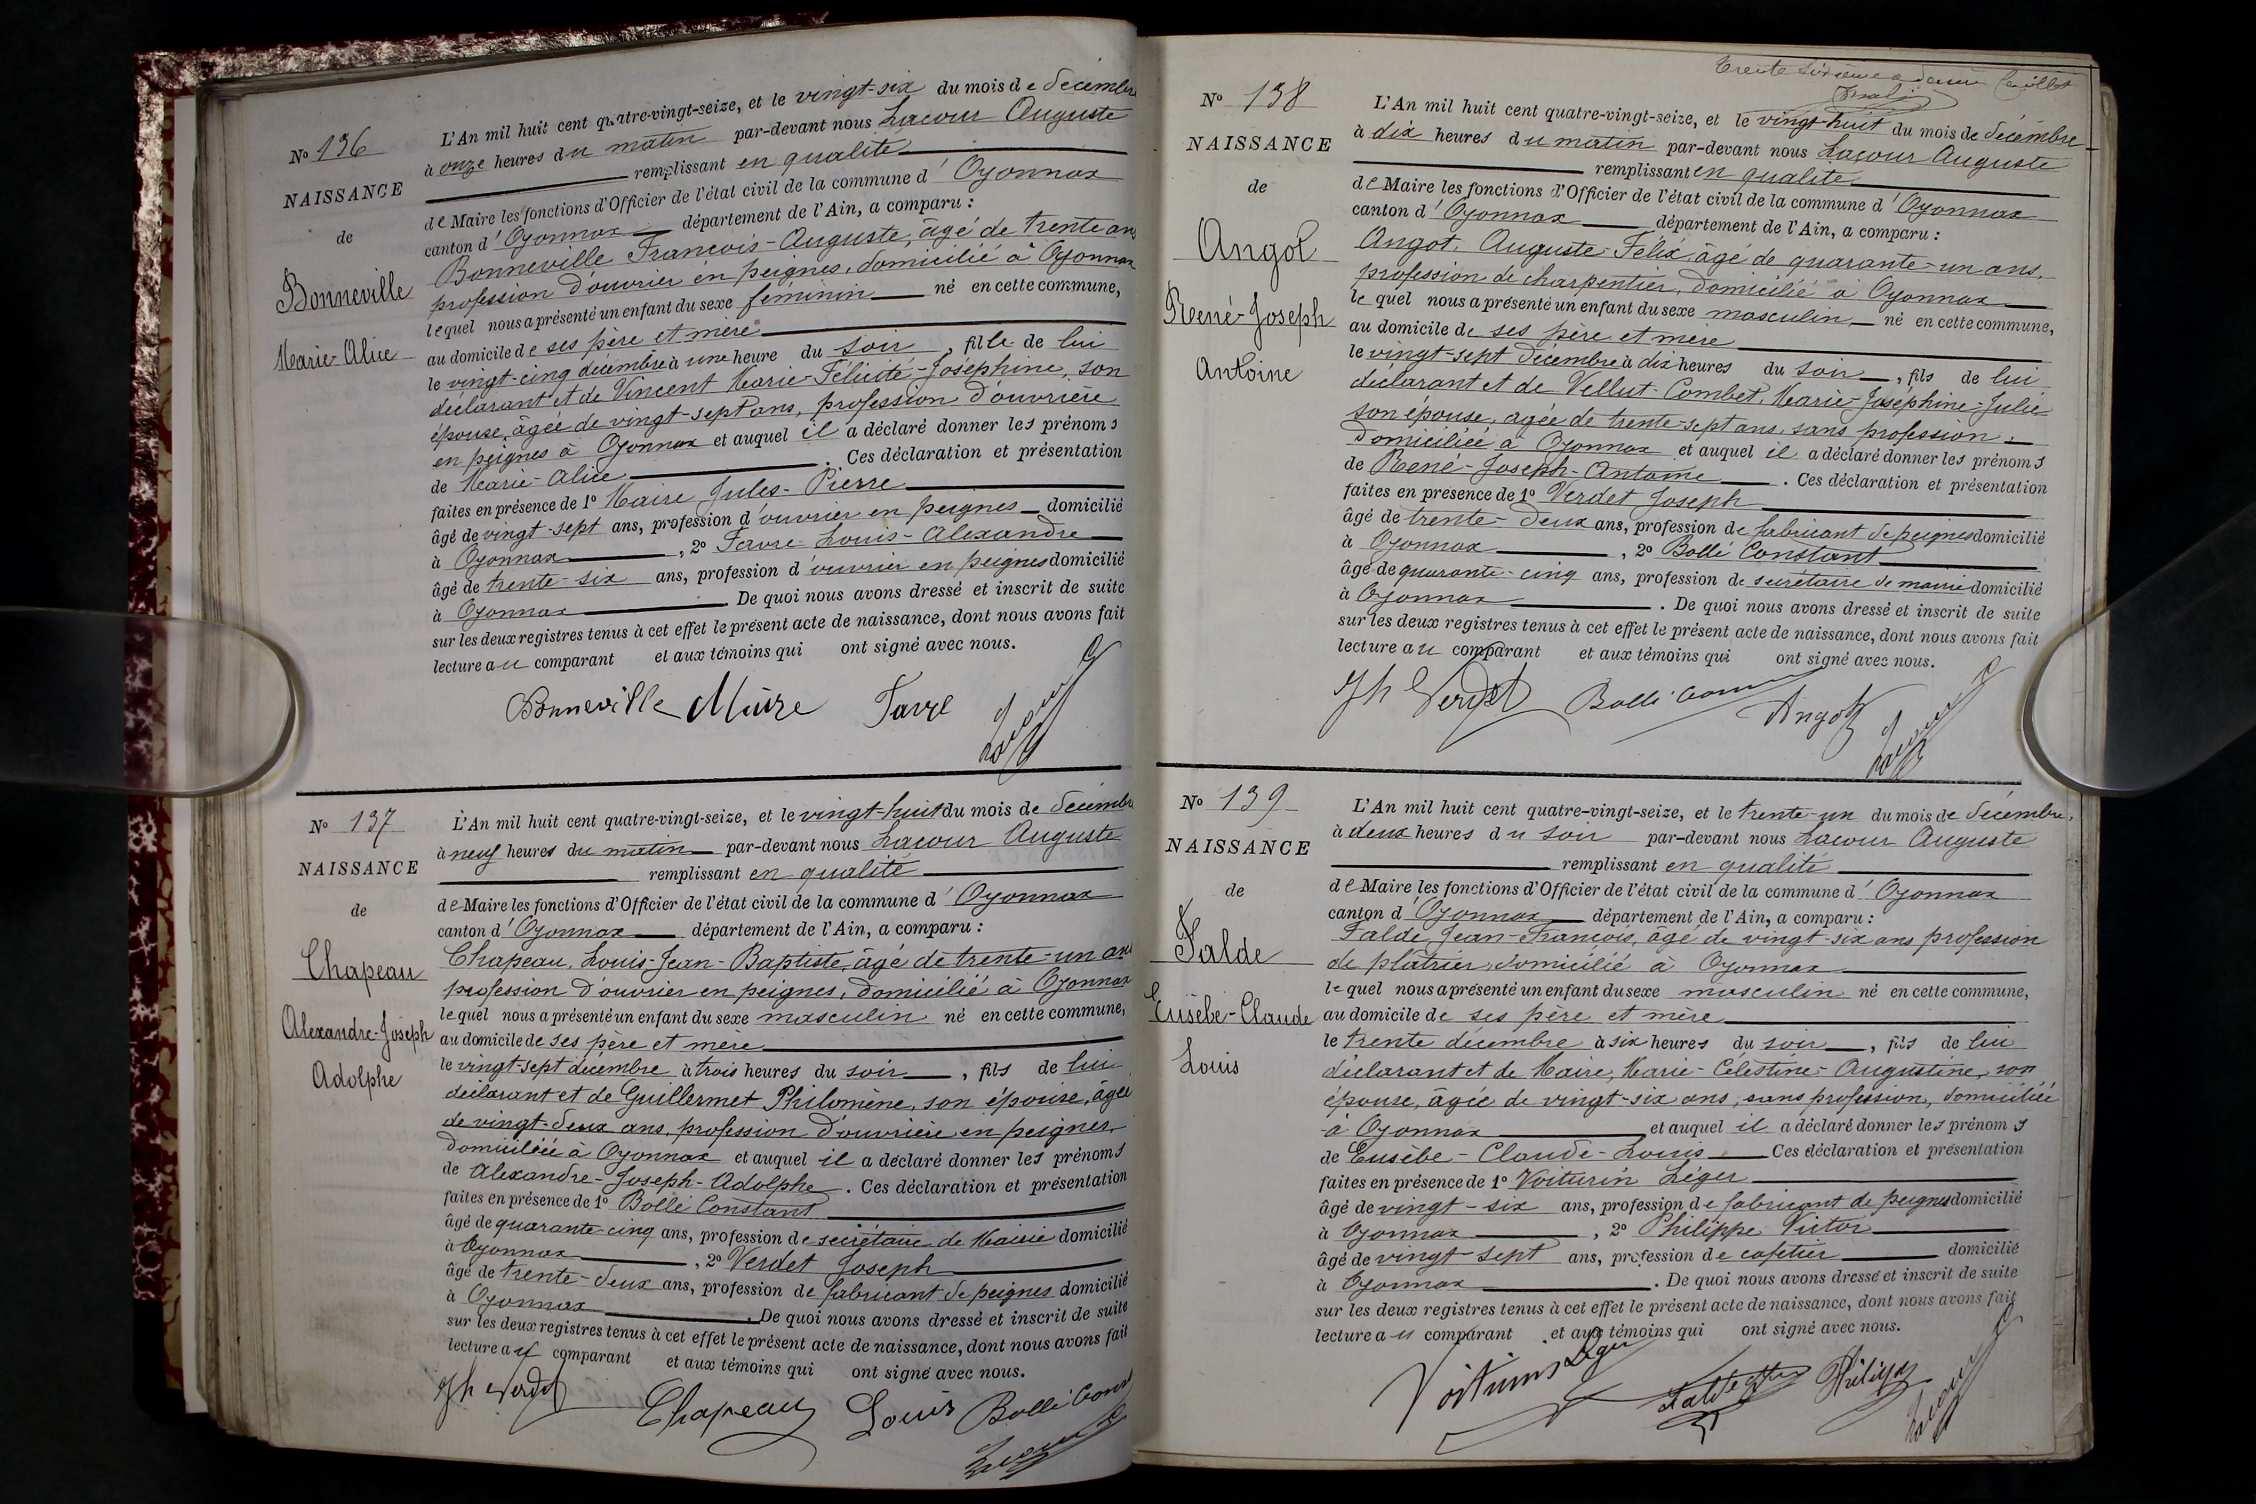 N° 136
NAISSANCE
de
Bonneville
Marie-Alice
L'An mil huit cent quatre-vingt-seize, et le vingt-six du mois de décembre
à onze heures du matin par-devant nous Lacour Auguste
remplissant en qualité
de Maire les fonctions d'Officier de l'état civil de la commune d'Oyonnax
canton d'Oyonnax département de l'Ain, a comparu :
Bonneville François-Auguste, âgé de trente ans
profession d'ouvrier en peignes, domicilié à Oyonnax
lequel nous a présenté un enfant du sexe féminin né en cette commune,
au domicile de ses père et mère
le vingt-cinq décembre à une heure du soir, fille de lui
déclarant et de Vincent Marie-Félicité-Joséphine, son
épouse, âgée de vingt-sept ans, profession d'ouvrière
en peignes à Oyonnax et auquel il a déclaré donner les prénoms
de Marie-Alice. Ces déclaration et présentation
faites en présence de 1° Maire Jules-Pierre
âgé de vingt-sept ans, profession d'ouvrier en peignes domicilié
à Oyonnax, 2° Favre Louis-Alexandre
âgé de trente-six ans, profession d'ouvrier en peignes domicilié
à Oyonnax. De quoi nous avons dressé et inscrit de suite
sur les deux registres tenus à cet effet le présent acte de naissance, dont nous avons fait
lecture au comparant et aux témoins qui ont signé avec nous.
Bonneville Maire Favre Lacour
N° 137
NAISSANCE
de
Chapeau
Alexandre-Joseph
Adolphe
L'An mil huit cent quatre-vingt-seize, et le vingt-huit du mois de décembre
à neuf heures du matin par-devant nous Lacour Auguste
remplissant en qualité
de Maire les fonctions d'Officier de l'état civil de la commune d'Oyonnax
canton d'Oyonnax département de l'Ain, a comparu :
Chapeau, Louis-Jean-Baptiste, âgé de trente-un ans
profession d'ouvrier en peignes, domicilié à Oyonnax
lequel nous a présenté un enfant du sexe masculin né en cette commune,
au domicile de ses père et mère
le vingt-sept décembre à trois heures du soir, fils de lui
déclarant et de Guillermet Philomène, son épouse, âgée
de vingt-deux ans, profession d'ouvrière en peignes,
domiciliée à Oyonnax et auquel il a déclaré donner les prénoms
de Alexandre-Joseph-Adolphe. Ces déclaration et présentation
faites en présence de 1° Bollé Constant
âgé de quarante-cinq ans, profession de secrétaire de Mairie domicilié
à Oyonnax, 2° Verdet Joseph
âgé de trente-deux ans, profession de fabricant de peignes domicilié
à Oyonnax. De quoi nous avons dressé et inscrit de suite
sur les deux registres tenus à cet effet le présent acte de naissance, dont nous avons fait
lecture au comparant et aux témoins qui ont signé avec nous.
Jh Verdet Chapeau Louis Bollé Const
Lacour
Trente sixième et dernier feuillet
N° 138
NAISSANCE
de
Angot
René-Joseph
Antoine
L'An mil huit cent quatre-vingt-seize, et le vingt-huit du mois de décembre
à dix heures du matin par-devant nous Lacour Auguste
remplissant en qualité
de Maire les fonctions d'Officier de l'état civil de la commune d'Oyonnax
canton d'Oyonnax département de l'Ain, a comparu :
Angot, Auguste-Félix, âgé de quarante-un ans,
profession de charpentier, domicilié à Oyonnax
lequel nous a présenté un enfant du sexe masculin né en cette commune,
au domicile de ses père et mère
le vingt-sept décembre à dix heures du soir, fils de lui
déclarant et de Vellut-Combet, Marie-Joséphine-Julie
son épouse, agée de trente-sept ans, sans profession,
domiciliée à Oyonnax et auquel il a déclaré donner les prénoms
de René-Joseph-Antoine. Ces déclaration et présentation
faites en présence de 1° Verdet Joseph
âgé de trente-deux ans, profession de fabricant de peignes domicilié
à Oyonnax, 2° Bollé Constant
âgé de quarante-cinq ans, profession de secrétaire de mairie domicilié
à Oyonnax. De quoi nous avons dressé et inscrit de suite
sur les deux registres tenus à cet effet le présent acte de naissance, dont nous avons fait
lecture au comparant et aux témoins qui ont signé avec nous.
Jh Verdet Bollé Angot Lacour
N° 139
NAISSANCE
de
Falde
Eusèbe-Claude
Louis
L'An mil huit cent quatre-vingt-seize, et le trente-un du mois de décembre,
à deux heures du soir par-devant nous Lacour Auguste
remplissant en qualité
de Maire les fonctions d'Officier de l'état civil de la commune d'Oyonnax
canton d'Oyonnax département de l'Ain, a comparu :
Falde, Jean-François, âgé de vingt-six ans profession
de plâtrier domicilié à Oyonnax
lequel nous a présenté un enfant du sexe masculin né en cette commune,
au domicile de ses père et mère
le trente décembre à six heures du soir, fils de lui
déclarant et de Maire, Marie-Célestine-Augustine, son
épouse, âgée de vingt-six ans, sans profession, domiciliée
à Oyonnax et auquel il a déclaré donner les prénoms
de Eusèbe-Claude-Louis Ces déclaration et présentation
faites en présence de 1° Voiturin Léger
âgé de vingt-six ans, profession de fabricant de peignes domicilié
à Oyonnax, 2° Philippe Victor
âgé de vingt-sept ans, profession de cafetier domicilié
à Oyonnax. De quoi nous avons dressé et inscrit de suite
sur les deux registres tenus à cet effet le présent acte de naissance, dont nous avons fait
lecture au comparant et aux témoins qui ont signé avec nous.
Voiturin Léger Lacour